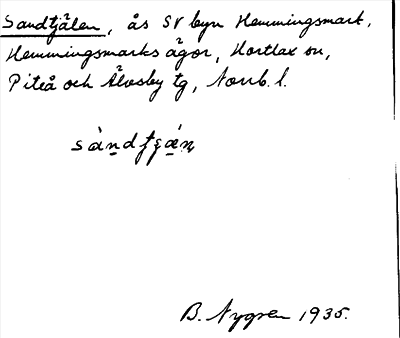 Sandtjälen, ås SV byn Hemmingsmark,
Hemmingsmarks ägor, Hortlax sn,
Piteå och Älvsby tg, Norrb. l.
B. Nygren 1935.